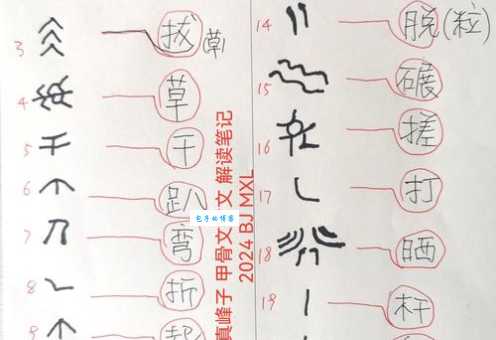 3 拔(草)
4 草
5 干
6 趴
7 弯
8 折
9
14 脱(粒)
15 碾
16 搓
17 打
18 晒
19 杆
真峰子 甲骨文 文 解读笔记
2024 BJ MXL